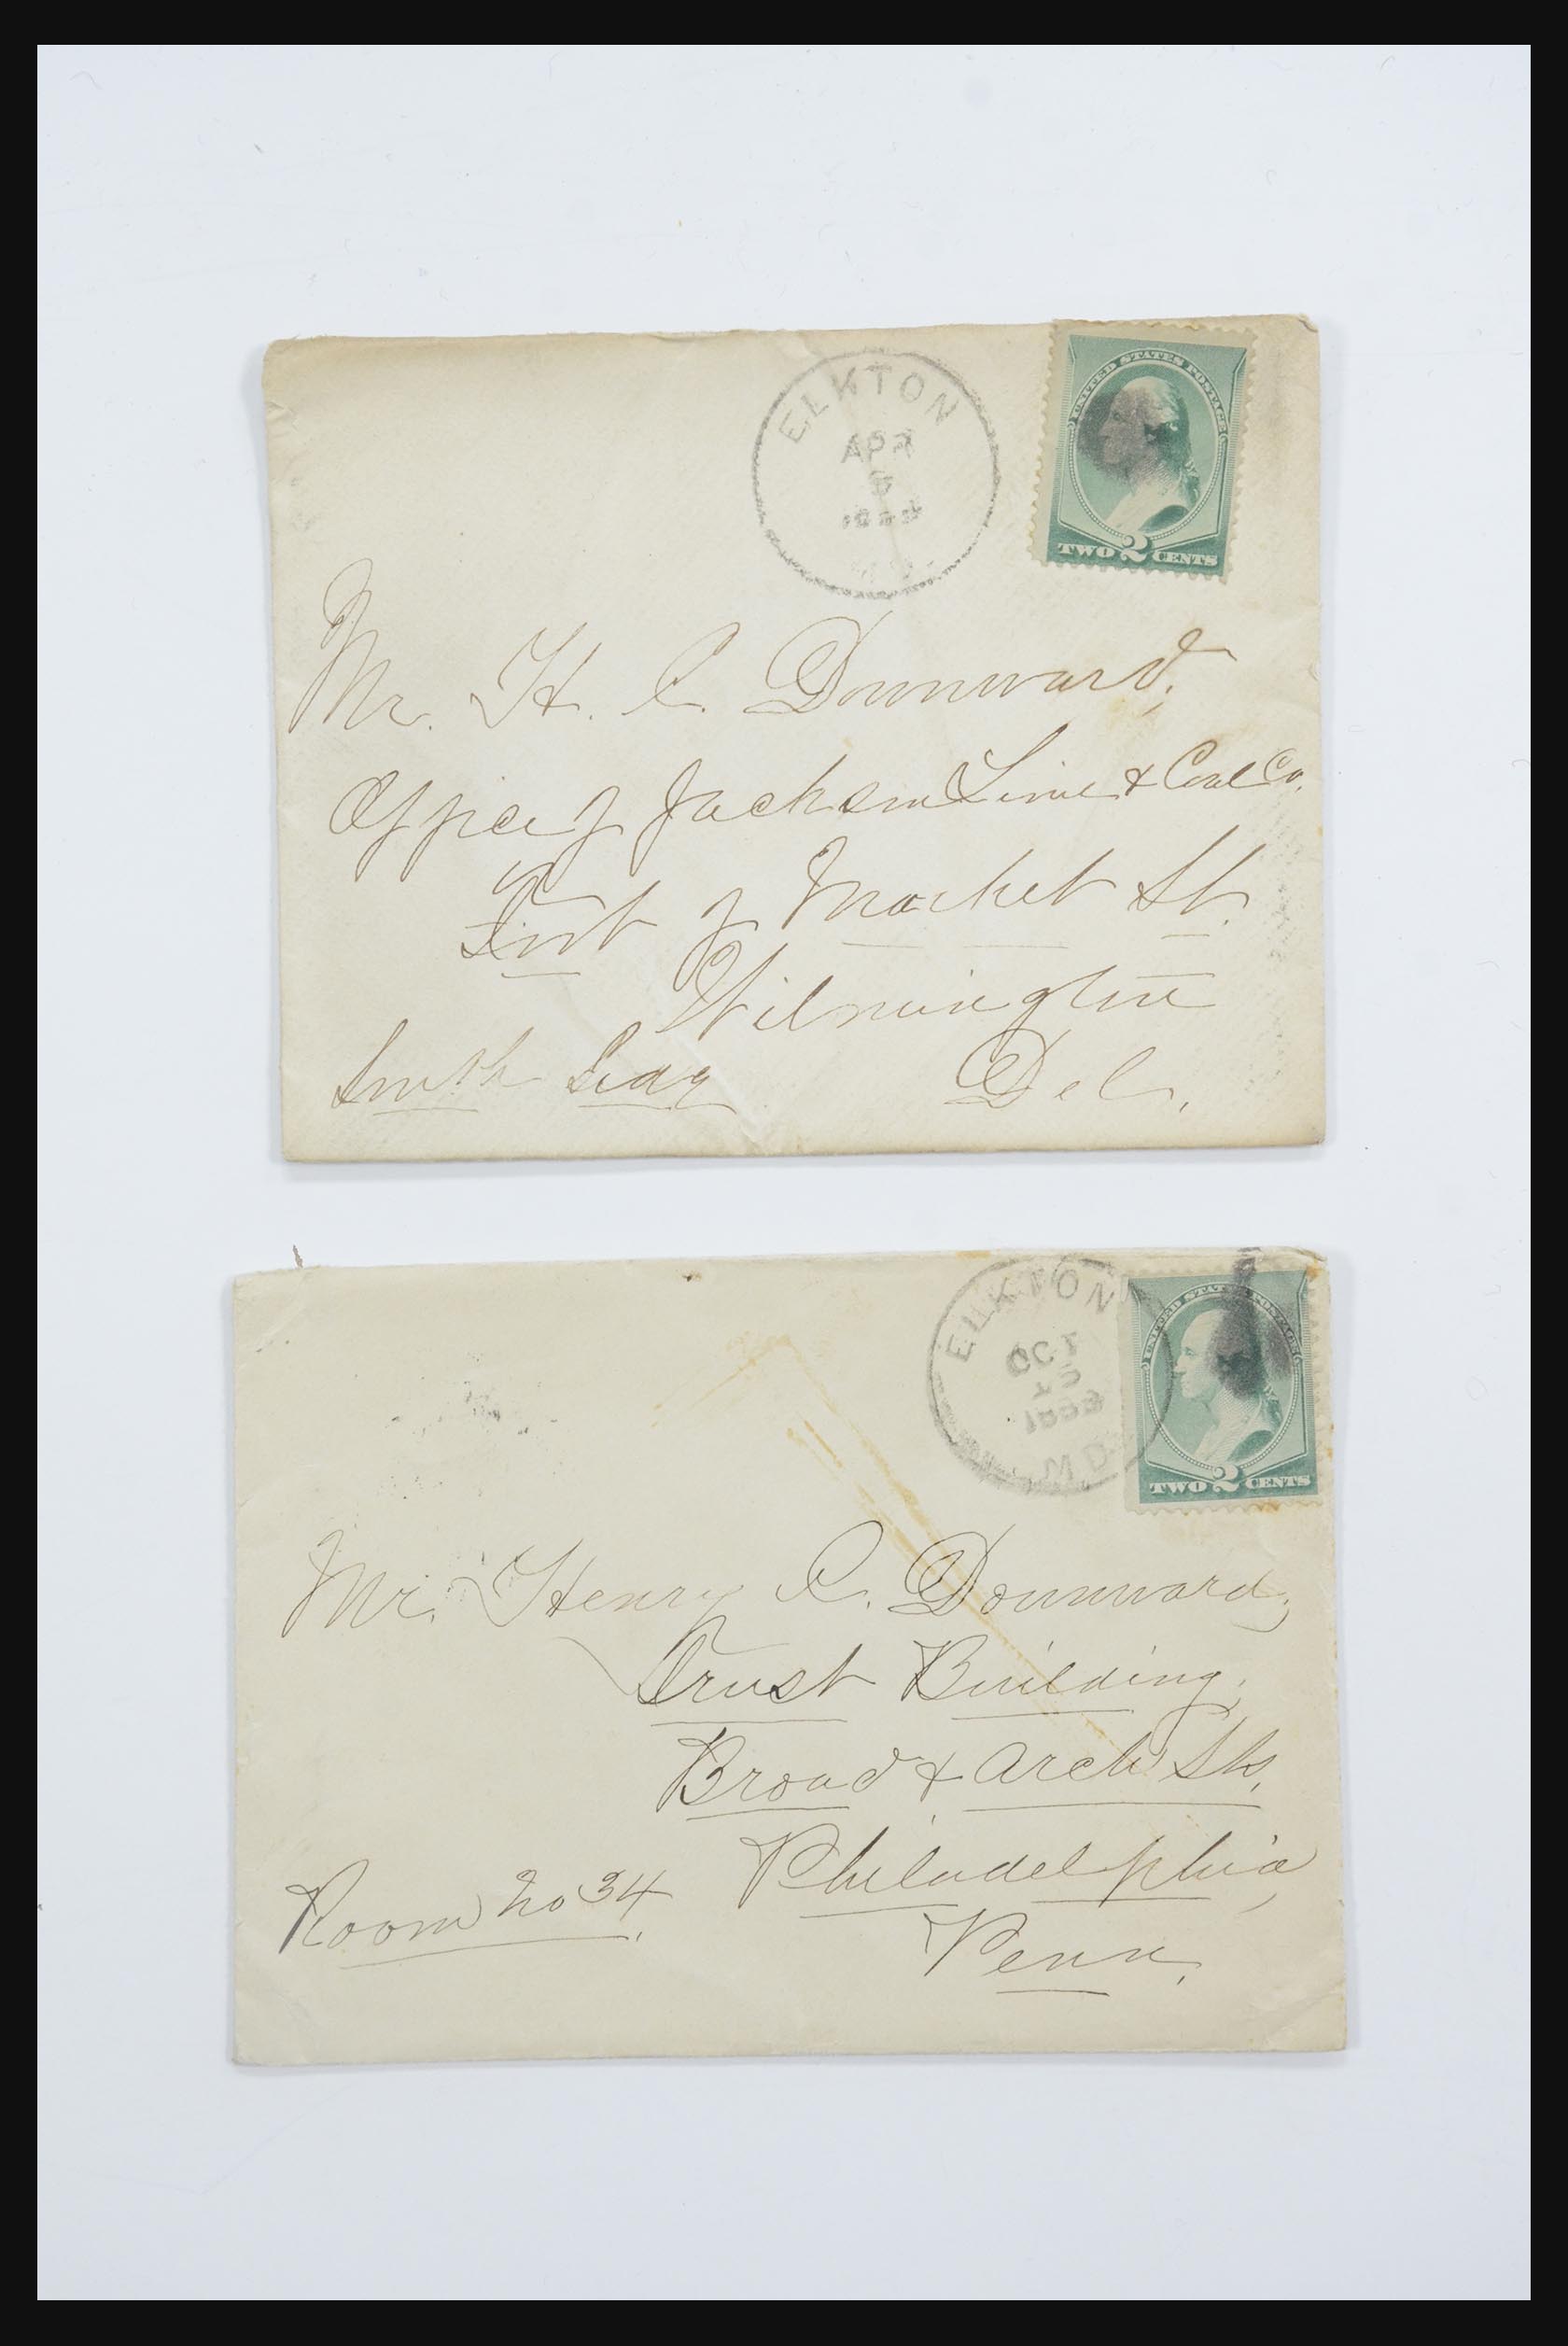 ELKTON
APR
UNITED STATES POSTAGE
TWO 2 CENTS
Mr. H. C. Downward,
Office of Jackson Lime & Coal Co.
Foot of Market St.
Wilmington
Del.
ELKTON
OCT
MD
UNITED STATES POSTAGE
TWO 2 CENTS
Mr. Henry C. Downward,
Trust Building,
Broad & Arch Sts.
Philadelphia,
Room No 34.
Penn.